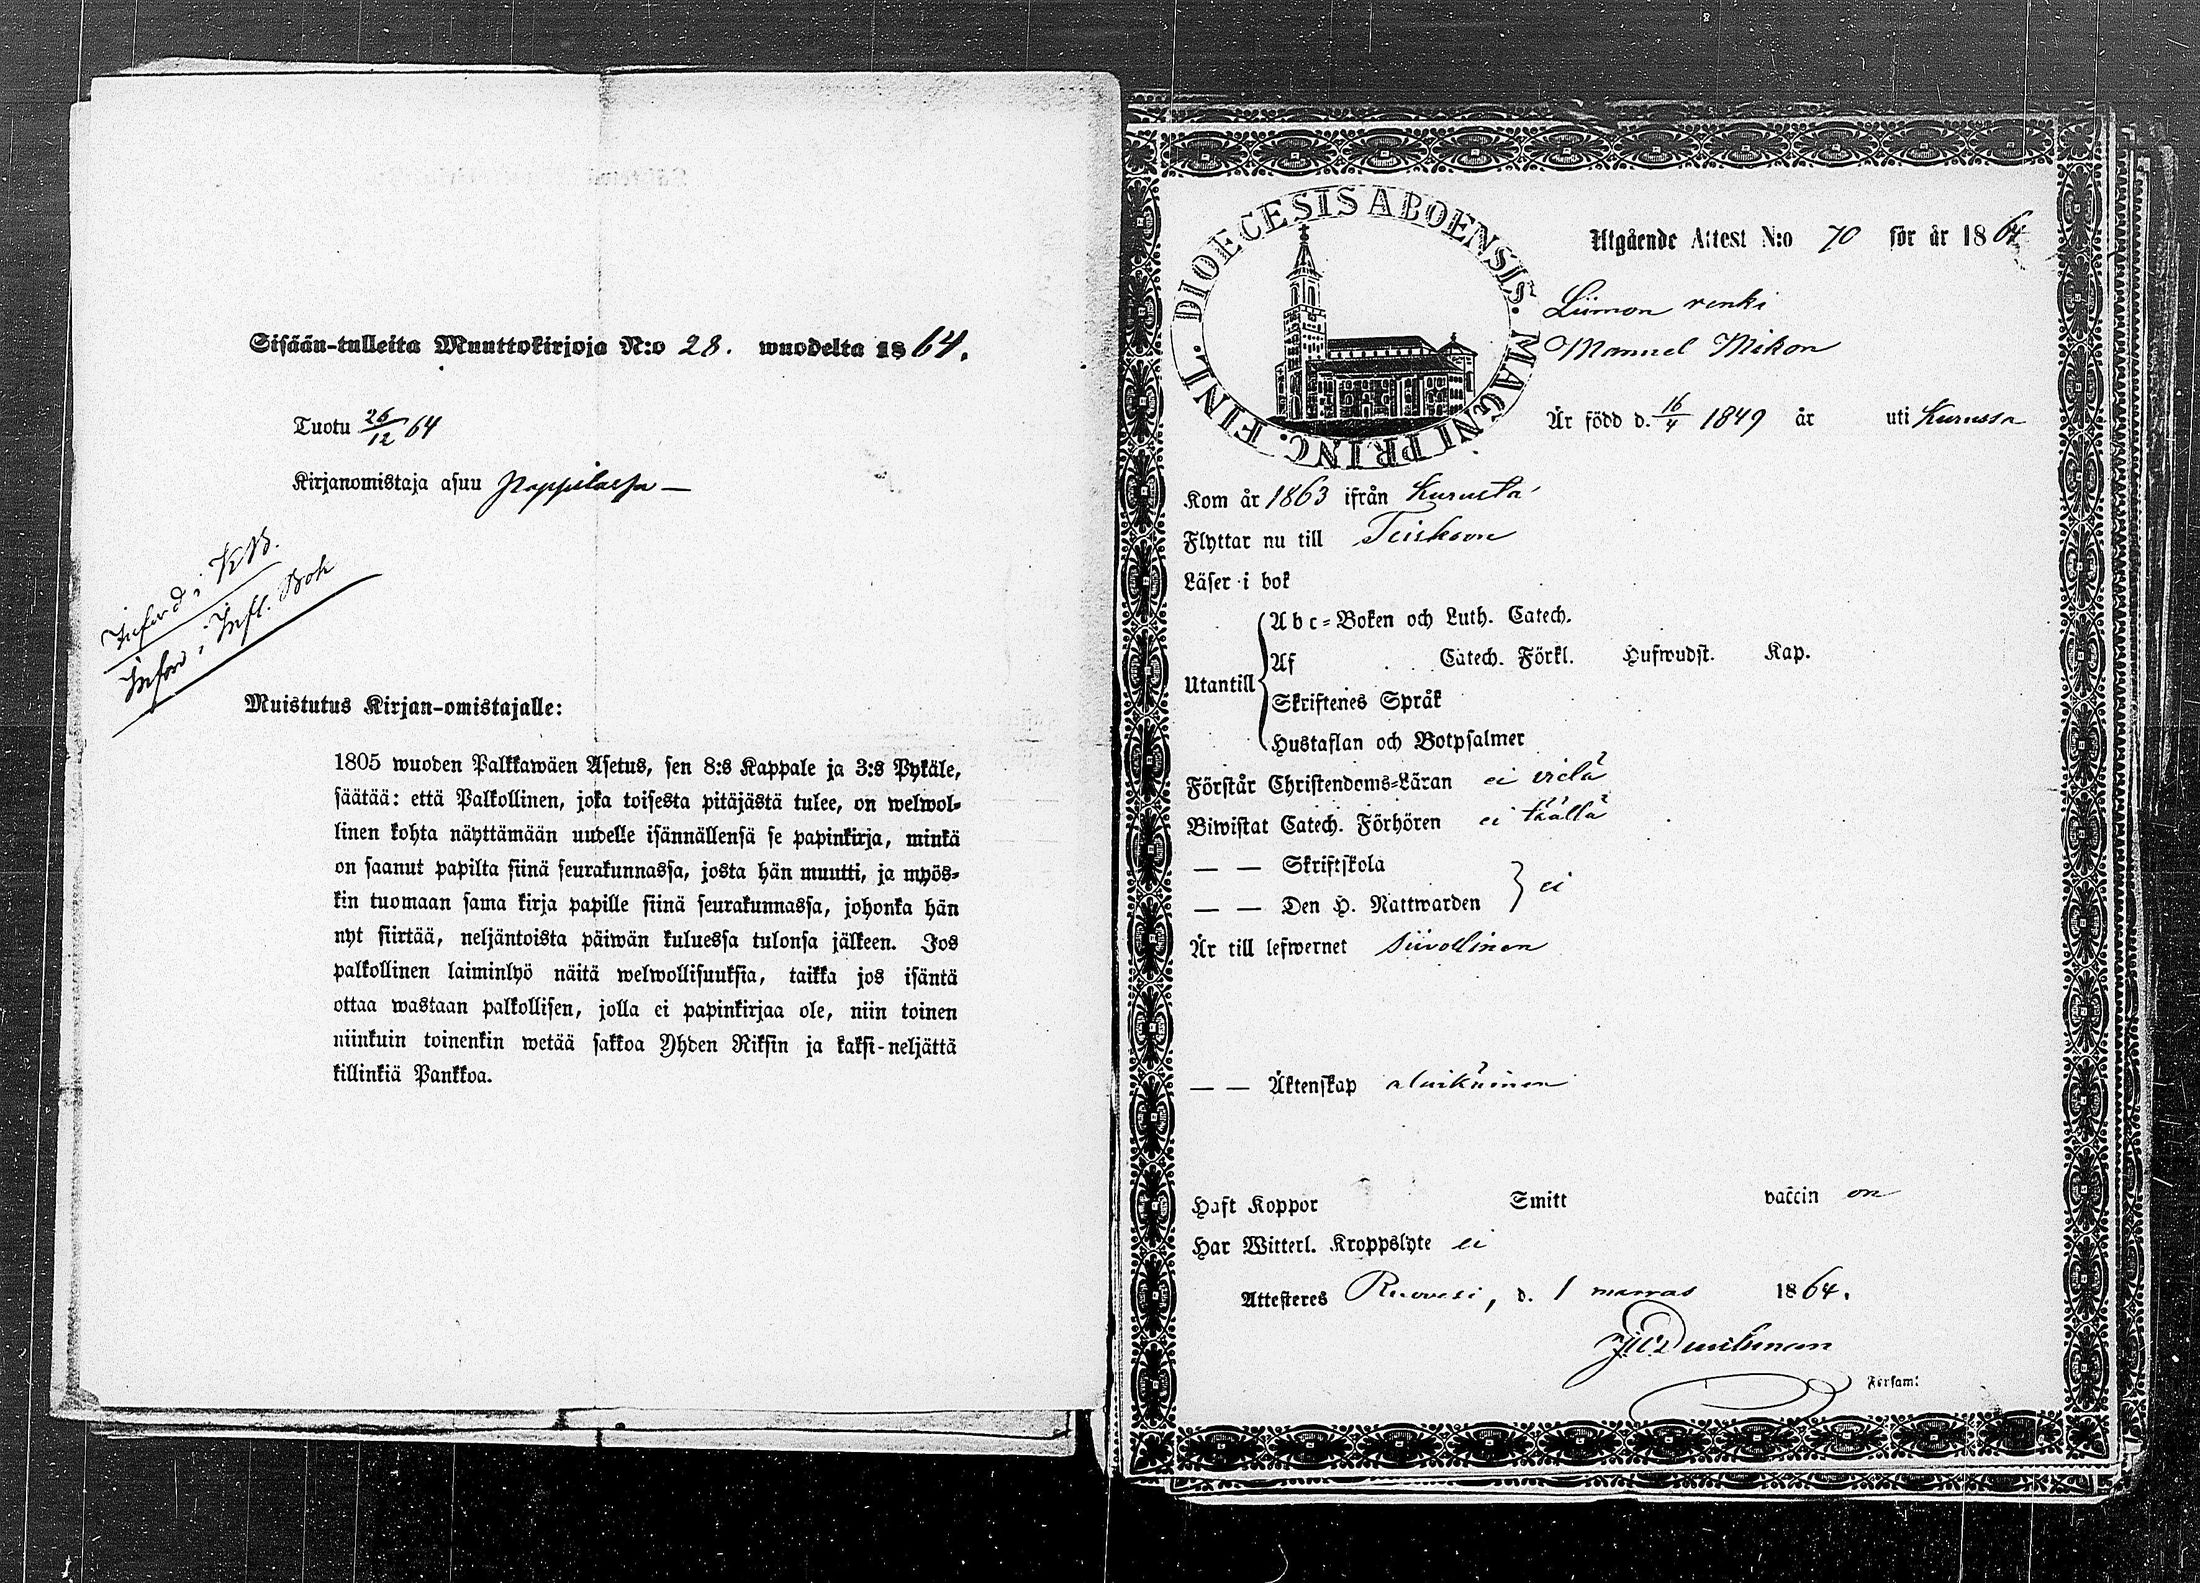 Sisään-tulleita Muuttokirjoja N:o 28. wuodelta 1864.
Tuotu 26/12 64
Kirjanomistaja asuu Pappilassa —
Införd i KB.
Införd i Infl. Bok
Muistutus Kirjan-omistajalle:
1805 wuoden Palkkawäen Asetus, sen 8:s Kappale ja 3:s Pykäle,
säätää: että Palkollinen, joka toisesta pitäjästä tulee, on welwol-
linen kohta näyttämään uudelle isännällensä se papinkirja, minkä
on saanut papilta siinä seurakunnassa, josta hän muutti, ja myös-
kin tuomaan sama kirja papille siinä seurakunnassa, johonka hän
nyt siirtää, neljäntoista päiwän kuluessa tulonsa jälkeen. Jos
palkollinen laiminlyö näitä welwollisuuksia, taikka jos isäntä
ottaa wastaan palkollisen, jolla ei papinkirjaa ole, niin toinen
niinkuin toinenkin wetää sakkoa Yhden Riksin ja kaksi-neljättä
killinkiä Pankkoa.
DIOECESIS ABOENSIS. MAGNI PRINC. FINL.
Utgående Attest N:o 70 för år 1864
Liimon renki
Manuel Mikon
Är född d. 16/4 1849 år uti Kurussa
Kom år 1863 ifrån Kurusta
Flyttar nu till Teiskoon
Läser i bok
Utantill
Abc-Boken och Luth. Catech.
Af Catech. Förkl. Hufwudst. Kap.
Skriftenes Språk
Hustaflan och Botpsalmer
Förstår Christendoms-Läran ei vielä
Biwistat Catech. Förhören ei täällä
— — Skriftskola
— — Den H. Nattwarden } ei
Är till lefwernet siivollinen
— — Äktenskap alaikäinen
Haft Koppor Smitt vaccin on
Har Witterl. Kroppslyte ei
Attesteres Ruovesi, d. 1 marras 1864.
Församl